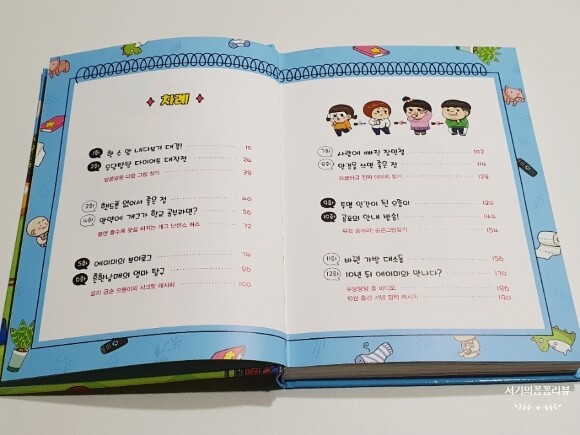 차례
1화 한 수 앞 내다보기 대결! 10
2화 우당탕탕 다이어트 대작전 24
알쏭달쏭 다른 그림 찾기 39
3화 핸드폰 없어서 좋은 점 40
4화 만약에 개그가 학교 공부라면? 56
풀면 풀수록 웃음 터지는 개그 난센스 퀴즈 72
5화 에이미의 브이로그 74
6화 흔한남매의 엄마 탐구 86
요리 금손 으뜸이의 시크릿 레시피 100
7화 사랑에 빠진 장민정 102
8화 안경을 쓰면 좋은 점 114
128
9화 투명 인간이 된 으뜸이 130
10화 공포의 안내 방송! 144
154
11화 바뀐 가방 대소동 156
12화 10년 뒤 에이미와 만나다? 170
우당탕탕 흔 비디오 186
10권 출간 기념 깜짝 메시지 190
서기의꼼꼼리뷰